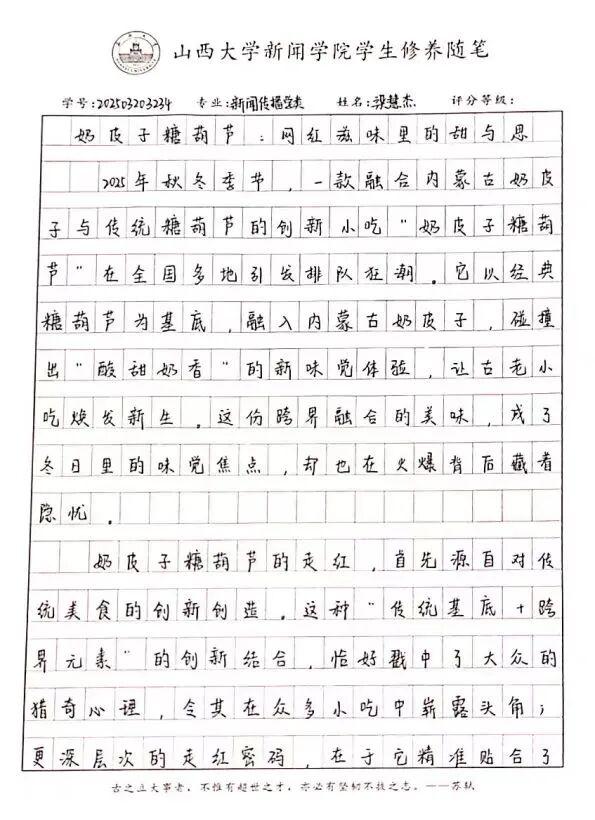 山西大学新闻学院学生修养随笔
学号:202503203234 专业:新闻传播学类 姓名:梁慧杰 评分等级:
奶皮子糖葫芦:网红滋味里的甜与思
2025年秋冬季节,一款融合内蒙古奶皮
子与传统糖葫芦的创新小吃"奶皮子糖葫
芦"在全国多地引发排队狂潮。它以经典
糖葫芦为基底,融入内蒙古奶皮子,碰撞
出"酸甜奶香"的新味觉体验,让古老小
吃焕发新生。这份跨界融合的美味,成了
冬日里的味觉焦点,却也在火爆背后藏着
隐忧。
奶皮子糖葫芦的走红,首先源自对传
统美食的创新创造。这种"传统基底+跨
界元素"的创新结合,恰好戳中了大众的
猎奇心理,令其在众多小吃中崭露头角;
更深层次的走红密码,在于它精准贴合了
古之立大事者,不惟有超世之才,亦必有坚韧不拔之志。——苏轼